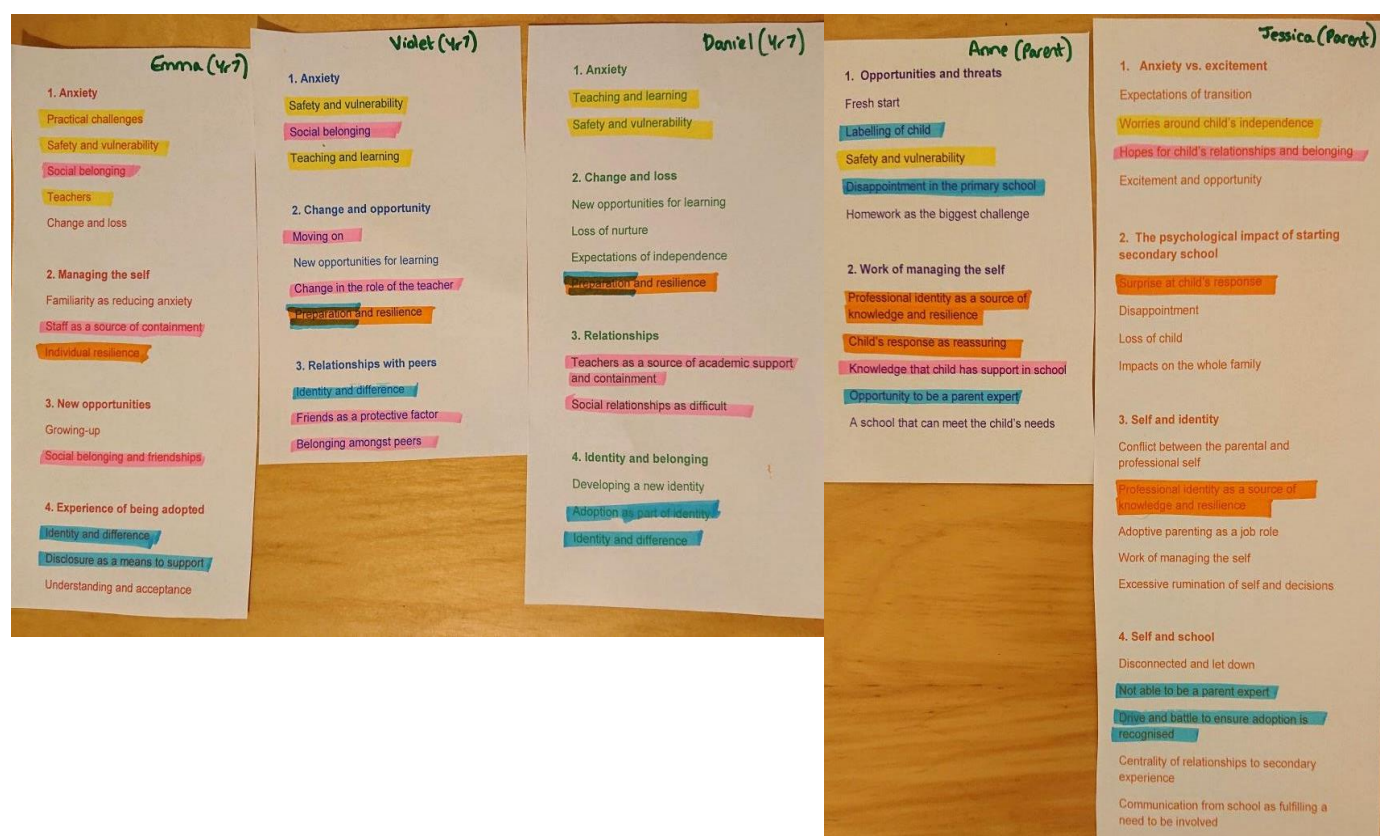 Emma (Yr7)
1. Anxiety
Practical challenges
Safety and vulnerability
Social belonging
Teachers
Change and loss
2. Managing the self
Familiarity as reducing anxiety
Staff as a source of containment
Individual resilience
3. New opportunities
Growing-up
Social belonging and friendships
4. Experience of being adopted
Identity and difference
Disclosure as a means to support
Understanding and acceptance
Violet (Yr7)
1. Anxiety
Safety and vulnerability
Social belonging
Teaching and learning
2. Change and opportunity
Moving on
New opportunities for learning
Change in the role of the teacher
Preparation and resilience
3. Relationships with peers
Identity and difference
Friends as a protective factor
Belonging amongst peers
Daniel (Yr7)
1. Anxiety
Teaching and learning
Safety and vulnerability
2. Change and loss
New opportunities for learning
Loss of nurture
Expectations of independence
Preparation and resilience
3. Relationships
Teachers as a source of academic support
and containment
Social relationships as difficult
4. Identity and belonging
Developing a new identity
Adoption as part of identity
Identity and difference
Anne (Parent)
1. Opportunities and threats
Fresh start
Labelling of child
Safety and vulnerability
Disappointment in the primary school
Homework as the biggest challenge
2. Work of managing the self
Professional identity as a source of
knowledge and resilience
Child's response as reassuring
Knowledge that child has support in school
Opportunity to be a parent expert
A school that can meet the child's needs
Jessica (Parent)
1. Anxiety vs. excitement
Expectations of transition
Worries around child's independence
Hopes for child's relationships and belonging
Excitement and opportunity
2. The psychological impact of starting
secondary school
Surprise at child's response
Disappointment
Loss of child
Impacts on the whole family
3. Self and identity
Conflict between the parental and
professional self
Professional identity as a source of
knowledge and resilience
Adoptive parenting as a job role
Work of managing the self
Excessive rumination of self and decisions
4. Self and school
Disconnected and let down
Not able to be a parent expert
Drive and battle to ensure adoption is
recognised
Centrality of relationships to secondary
experience
Communication from school as fulfilling a
need to be involved